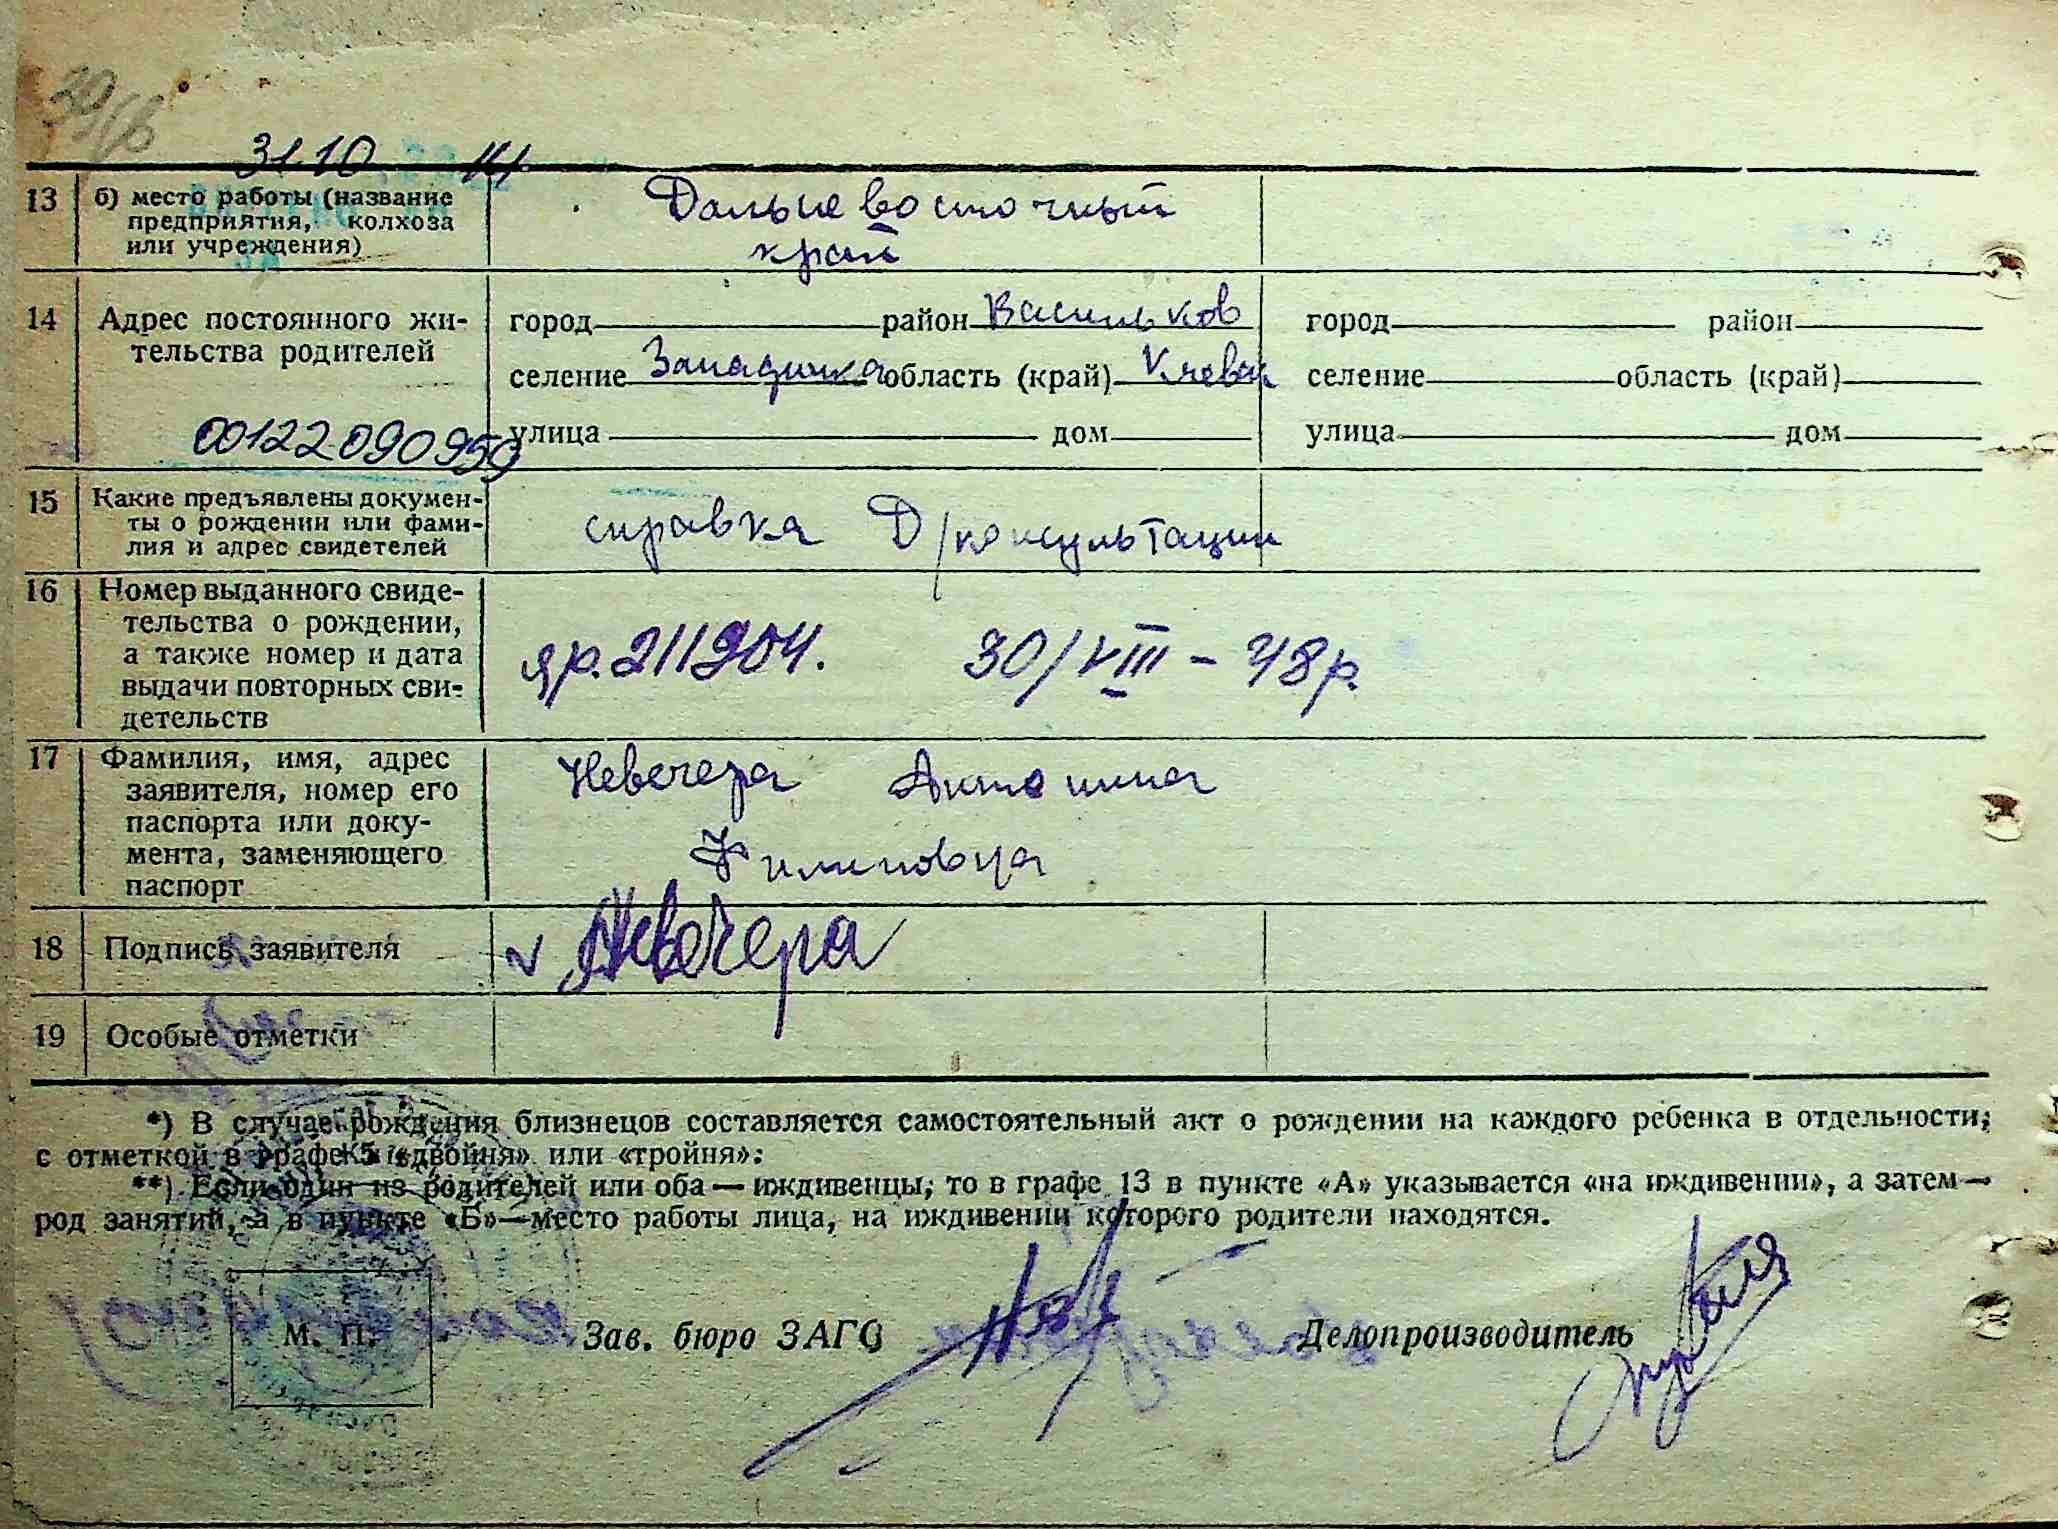 31 10
13 б) место работы (название предприятия, колхоза или учреждения) Дальневосточный край
14 Адрес постоянного жительства родителей
город район Васильков город район
селение Западинка область (край) Киевск селение область (край)
улица дом улица дом
00122090959
15 Какие предъявлены документы о рождении или фамилия и адрес свидетелей справка Д/консультации
16 Номер выданного свидетельства о рождении, а также номер и дата выдачи повторных свидетельств яр. 211904. 30/VIII - 48р.
17 Фамилия, имя, адрес заявителя, номер его паспорта или документа, заменяющего паспорт Невечера Антонина Филиповна
18 Подпись заявителя v Невечера
19 Особые отметки
*) В случае рождения близнецов составляется самостоятельный акт о рождении на каждого ребенка в отдельности;
с отметкой в графе 5 «двойня» или «тройня»:
**) Если один из родителей или оба — иждивенцы, то в графе 13 в пункте «А» указывается «на иждивении», а затем —
род занятий, а в пункте «Б» — место работы лица, на иждивении которого родители находятся.
М. П. Зав. бюро ЗАГС Делопроизводитель